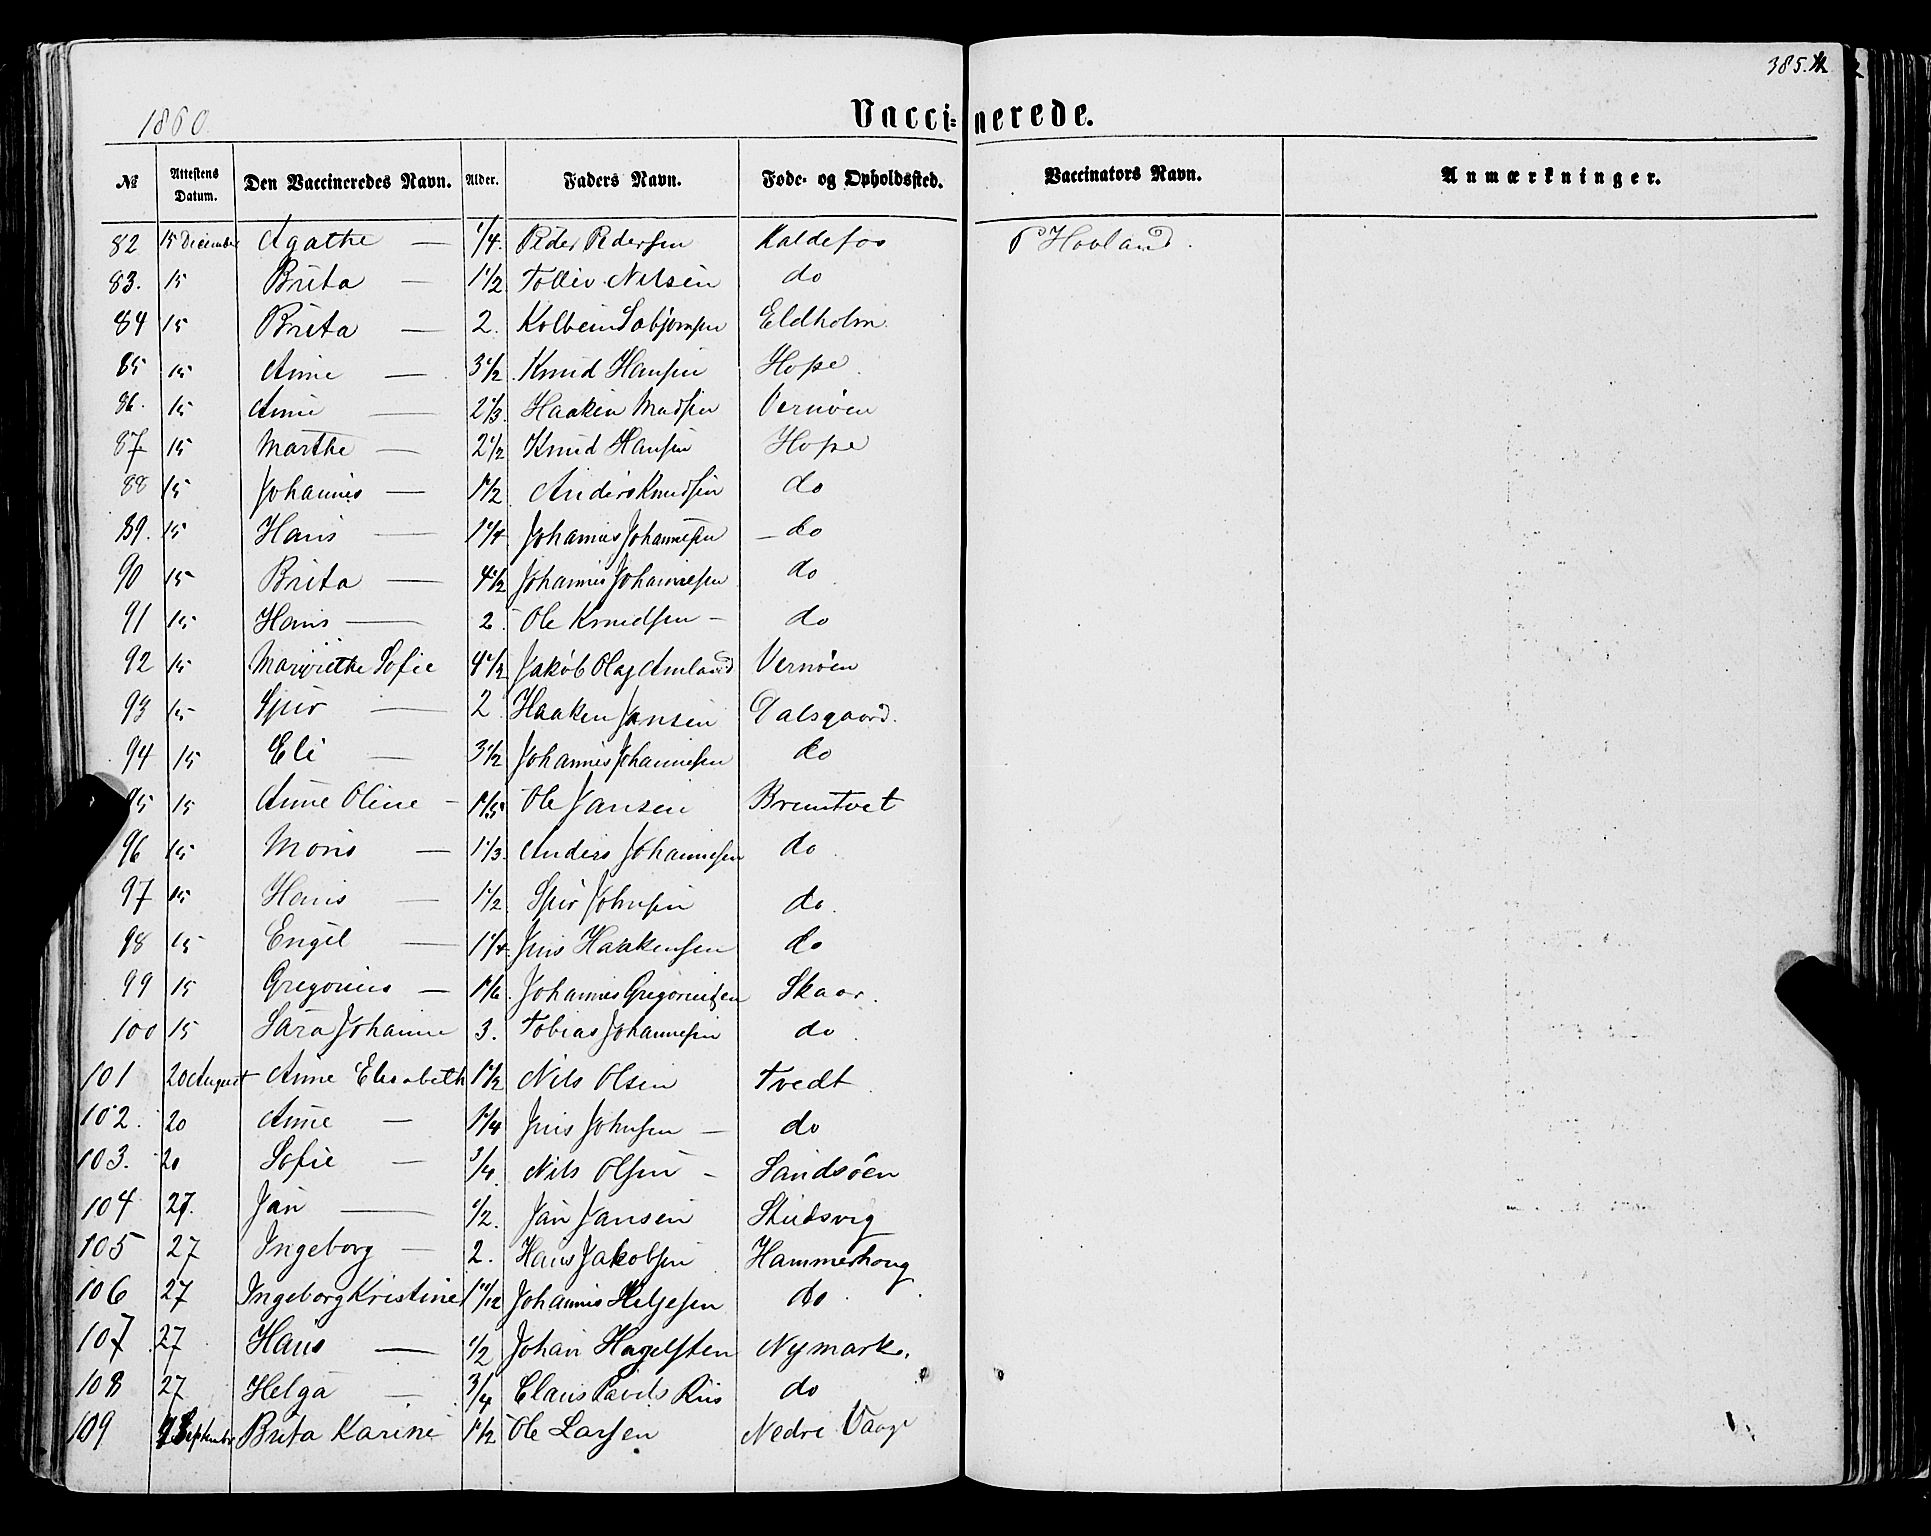 385.
1860.
Vacci=nerede.
№ Attestens Datum. Den Vaccineredes Navn. Alder. Faders Navn. Føde- og Opholdssted. Vaccinators Navn. Anmærkninger.
82 15 December Agathe — 1/4. Peder Pedersen Kaldefos P Hovland.
83. 15 Brita — 1 1/2 Tollev Nilsen do
84 15 Brita — 2. Kolbein Eldholm.
85 15 Anne — 3 1/2 Knud Hansen Hope.
86. 15 Anne — 2 1/3. Haaken Madsen Vernøen
87 15 Marthe — 2 1/2 Knud Hansen Hope
88 15 Johannes — 1 1/2 Anders Knudsen do
89. 15 Hans — 1 1/4 Johannes Johannesen — do
90 15 Brita — 4 1/2 Johannes Johannesen do
91 15 Hans — 2 Ole Knudsen — do
92 15 Margrethe Sofie 4 1/2 Jakob Olaj Amland Vernøen
93 15 Sjur — 2. Haaken Jansen Dalsgaard.
94 15 Eli — 3 1/2 Johannes Johannesen do
95 15 Anne Oline — 1 1/5 Ole Jansen Bremtvet
96 15 Mons — 1 1/3. Anders Johannesen do
97 15 Hans — 1 1/2 Sjur Johnsen do.
98 15 Engel — 1 1/4. Jens Haakensen do
99 15 Gregorius — 1 1/6. Johannes Gregoriusen Skaar.
100 15 Sara Johanne 3. Tobias Johannesen do
101 20 August Anne Elisabeth 1 1/2 Nils Olsen Tvedt
102. 20 Anne — 1 1/4 Jens Johnsen — do
103. 20 Sofie — 3/4. Nils Olsen — Sandsøen
104 27. Jan — 1/2. Jan Jansen Skudsvig
105 27 Ingeborg — 2. Hans Jakobsen Hammerhoug
106 27 Ingeborg Kristine 1 10/12 Johannes Helgesen do.
107 27 Hans — 1/2 Johan Hagelsten Nymark.
108 27 Helga — 3/4 Claus Pavels Riis do
109 September Brita Karine 1 1/2 Ole Larsen Nedre Vaage